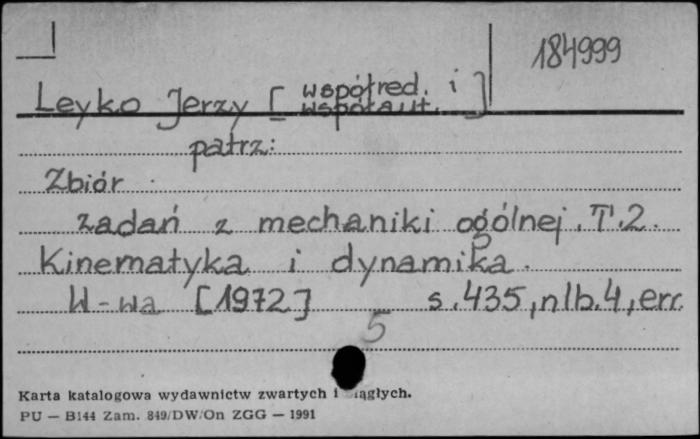 184999
Leyko Jerzy [współred. i współaut.]
patrz:
Zbiór
zadań z mechaniki ogólnej. T.2.
Kinematyka i dynamika.
W-wa [1972] s.435, nlb.4, err.
5
Karta katalogowa wydawnictw zwartych i ągłych.
PU — B144 Zam. 849/DW/On ZGG — 1991